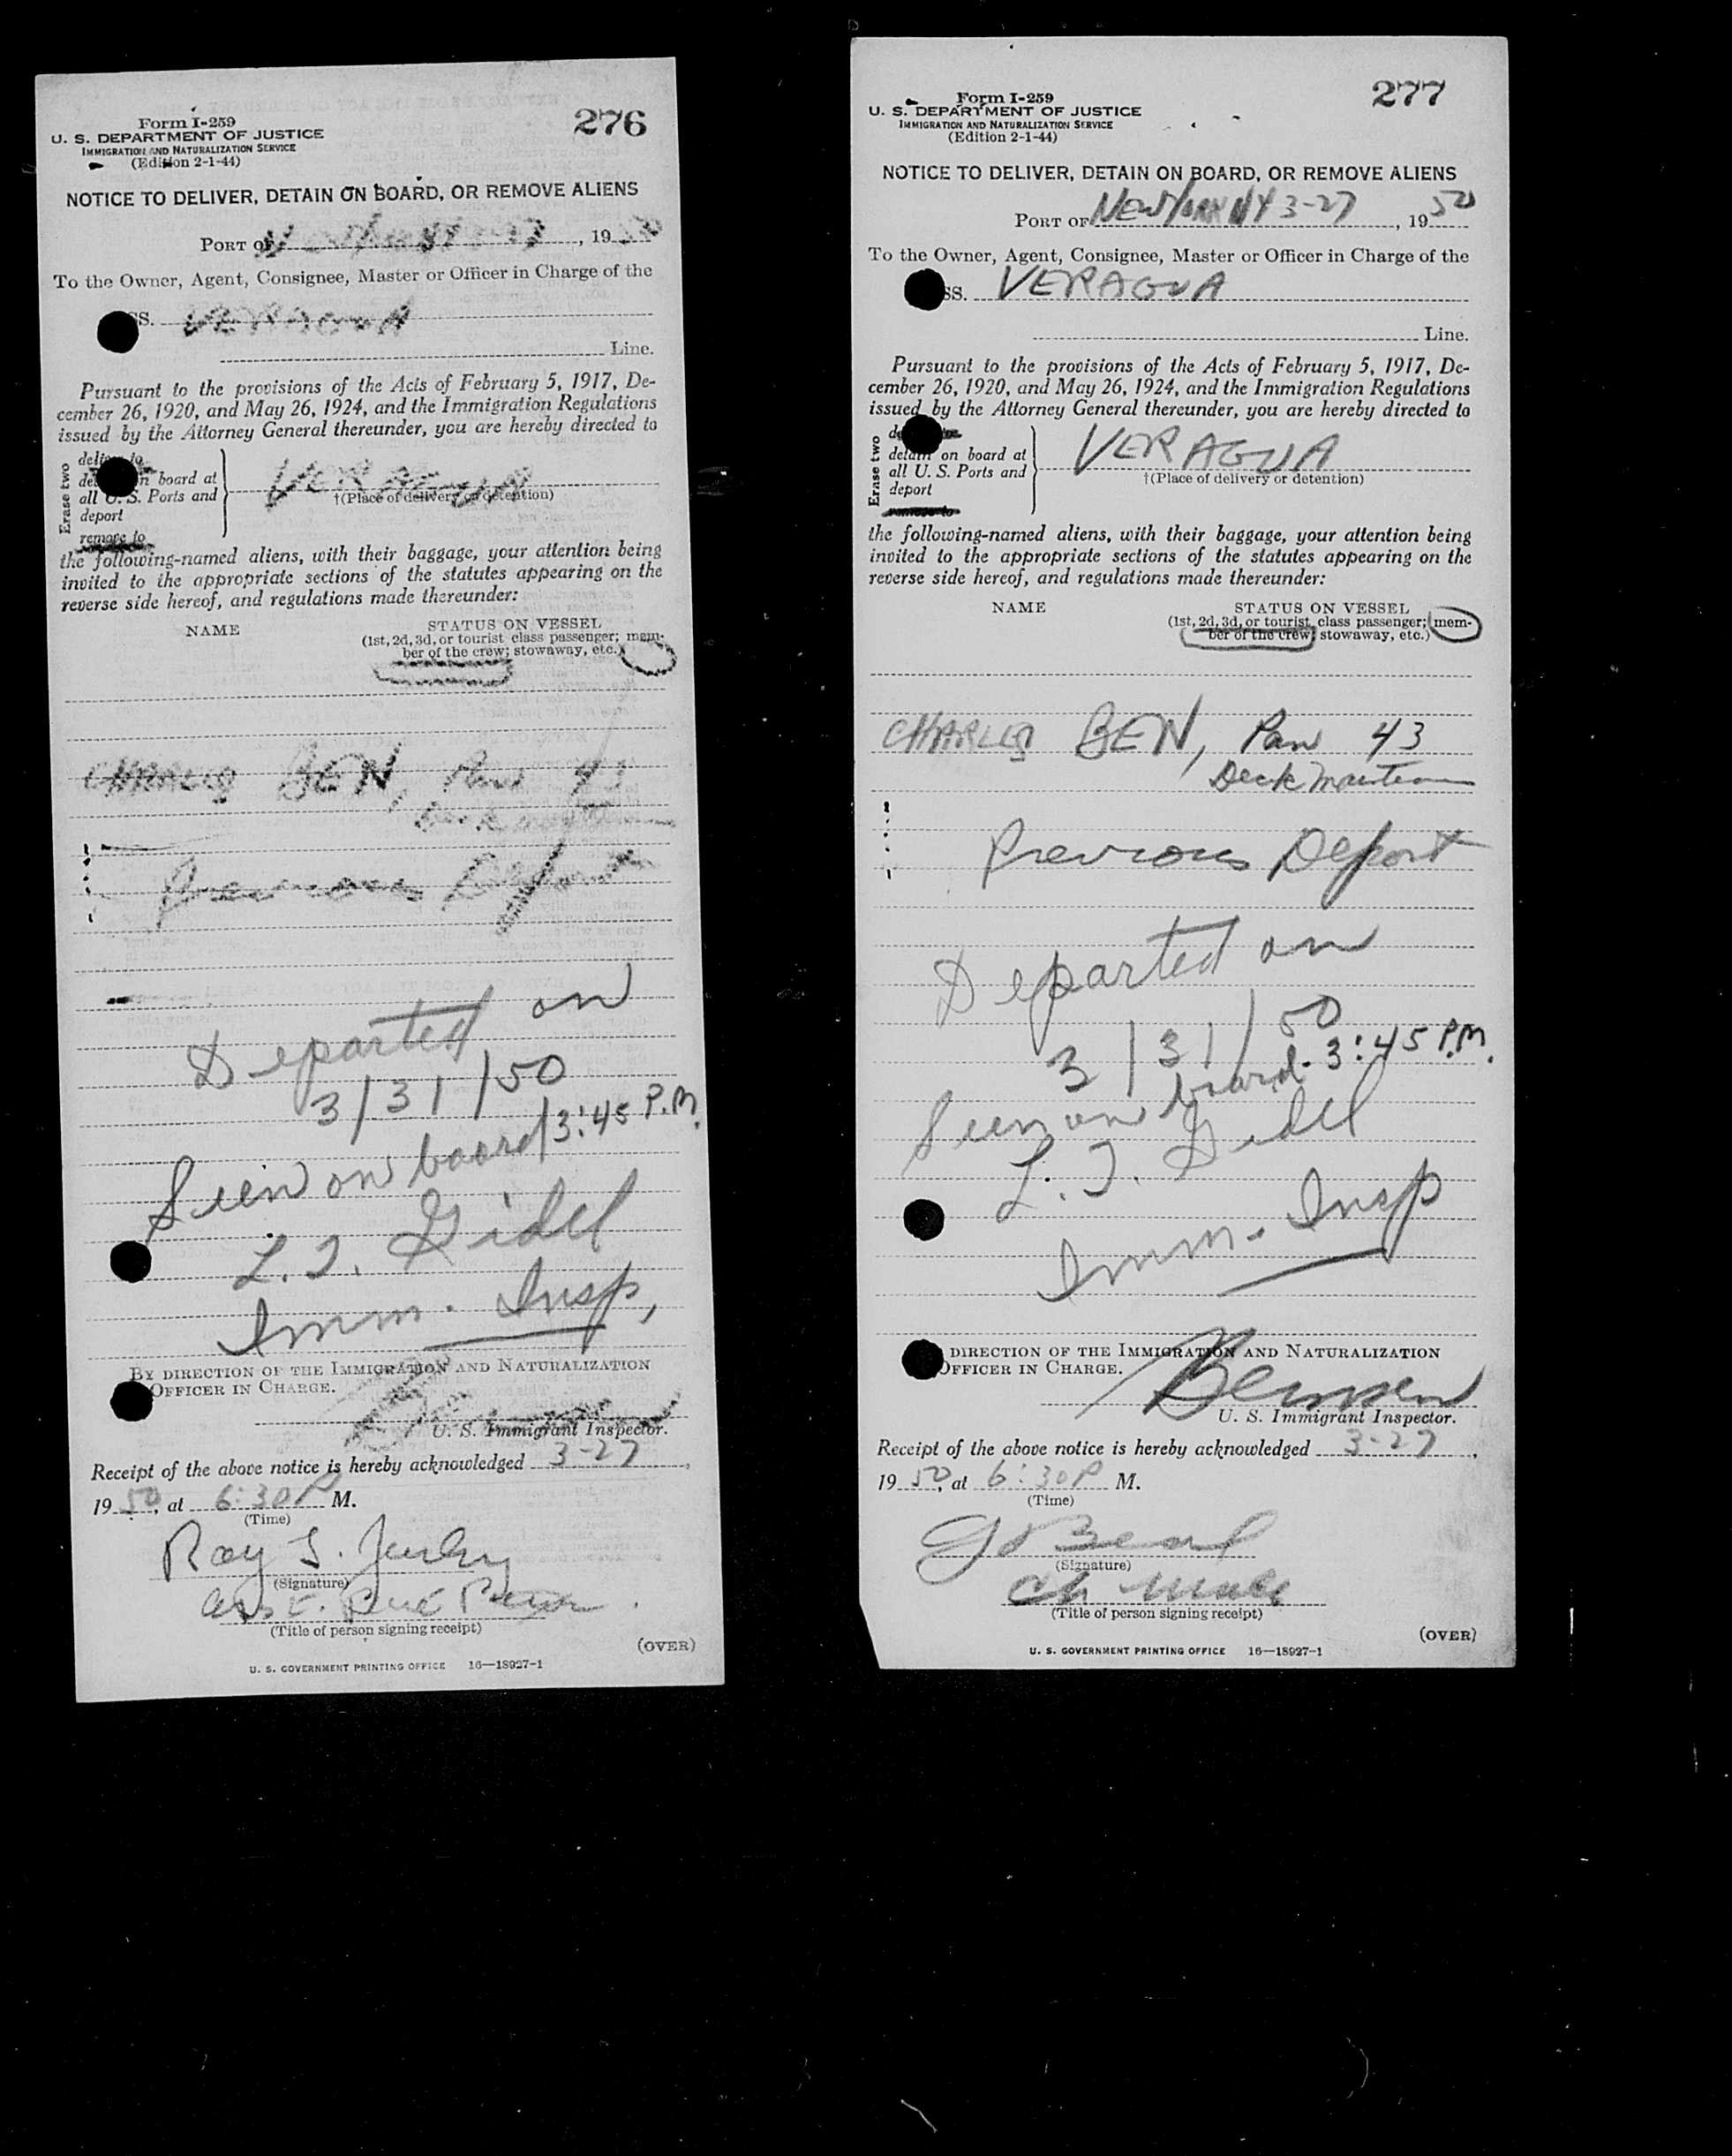 276
Form I-259
U. S. DEPARTMENT OF JUSTICE
IMMIGRATION AND NATURALIZATION SERVICE
(Edition 2-1-44)
NOTICE TO DELIVER, DETAIN ON BOARD, OR REMOVE ALIENS
PORT OF , 19
To the Owner, Agent, Consignee, Master or Officer in Charge of the
SS. VERAGUA
Line.
Pursuant to the provisions of the Acts of February 5, 1917, De-
cember 26, 1920, and May 26, 1924, and the Immigration Regulations
issued by the Attorney General thereunder, you are hereby directed to
Erase two
deliver to
on board at
all U. S. Ports and
deport
remove to
VERAGUA
†(Place of delivery or detention)
the following-named aliens, with their baggage, your attention being
invited to the appropriate sections of the statutes appearing on the
reverse side hereof, and regulations made thereunder:
NAME
STATUS ON VESSEL
(1st, 2d, 3d, or tourist class passenger; mem-
ber of the crew; stowaway, etc.)
CHARLES BEN, Pan 43
Previous Deport
Departed on
3/31/50
Seen on board 3:45 P.M.
L. J. Gidel
Imm. Insp,
BY DIRECTION OF THE IMMIGRATION AND NATURALIZATION
OFFICER IN CHARGE.
U. S. Immigrant Inspector.
Receipt of the above notice is hereby acknowledged 3-27,
19 50, at 6:30 P M.
(Time)
Ray
(Signature)
(Title of person signing receipt)
(OVER)
U. S. GOVERNMENT PRINTING OFFICE 16—18927-1
277
Form I-259
U. S. DEPARTMENT OF JUSTICE
IMMIGRATION AND NATURALIZATION SERVICE
(Edition 2-1-44)
NOTICE TO DELIVER, DETAIN ON BOARD, OR REMOVE ALIENS
PORT OF New York NY 3-27, 19 50
To the Owner, Agent, Consignee, Master or Officer in Charge of the
SS. VERAGUA
Line.
Pursuant to the provisions of the Acts of February 5, 1917, De-
cember 26, 1920, and May 26, 1924, and the Immigration Regulations
issued by the Attorney General thereunder, you are hereby directed to
Erase two
detain on board at
all U. S. Ports and
deport
VERAGUA
†(Place of delivery or detention)
the following-named aliens, with their baggage, your attention being
invited to the appropriate sections of the statutes appearing on the
reverse side hereof, and regulations made thereunder:
NAME
STATUS ON VESSEL
(1st, 2d, 3d, or tourist class passenger; mem-
ber of the crew; stowaway, etc.)
CHARLES BEN, Pan 43
Deck
Previous Deport
Departed on
3/31/50
Seen on board. 3:45 P.M.
L. J. Gidel
Imm. Insp
DIRECTION OF THE IMMIGRATION AND NATURALIZATION
OFFICER IN CHARGE.
U. S. Immigrant Inspector.
Receipt of the above notice is hereby acknowledged 3-27,
19 50, at 6:30 P M.
(Time)
(Signature)
Ch Mate
(Title of person signing receipt)
(OVER)
U. S. GOVERNMENT PRINTING OFFICE 16—18927-1